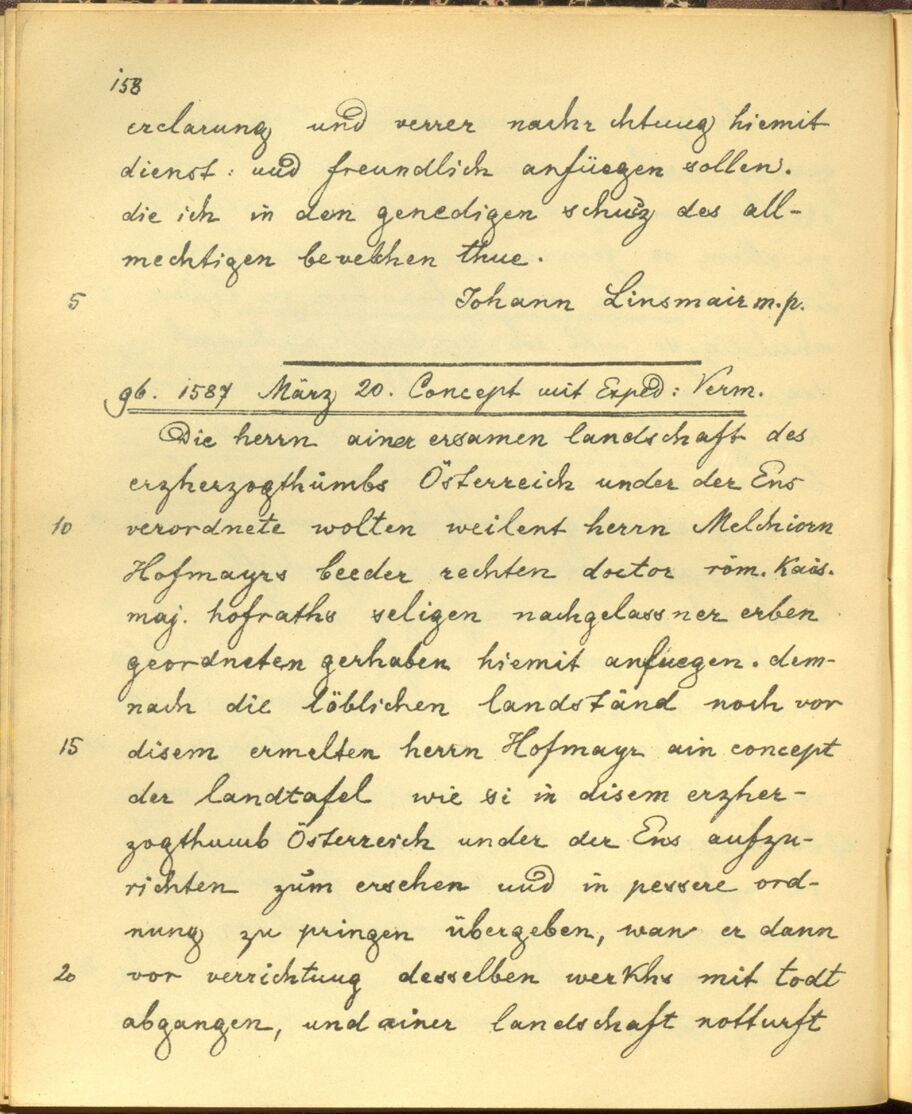 158
erclarung und verrer nachrichtung hiemit
dienst: und freundlich anfüegen sollen.
die ich in den genedigen schuz des all-
mechtigen bevelhen thue.
5 Johann Linsmair m.p.
96. 1587 März 20. Concept mit Exped: Verm.
Die herrn ainer ersamen landschaft des
erzherzogthumbs Österreich under der Ens
10 verordnete wolten weilent herrn Melchiorn
Hofmayrs beeder rechten doctor röm. Kais.
maj. hofraths seligen nachgelassner erben
geordneten gerhaben hiemit anfuegen. dem-
nach die löblichen landständ noch vor
15 disem ermelten herrn Hofmayr ain concept
der landtafel wie si in disem erzher-
zogthumb Österreich under der Ens aufzu-
richten zum ersehen und in pessere ord-
nung zu pringen übergeben, wan er dann
20 vor verrichtung desselben werkhs mit todt
abgangen, und ainer landschaft notturft